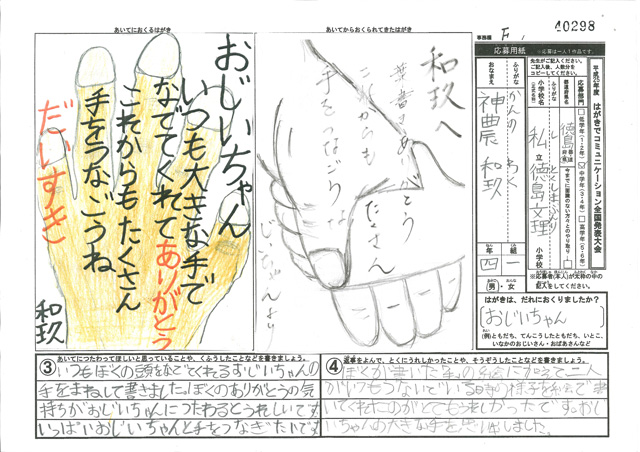 あいてにおくるはがき
おじいちゃん
いつも大きな手で
なでてくれてありがとう
これからもたくさん
手をつなごうね
だいすき
和玖
あいてからおくられてきたはがき
和玖へ
葉書をありがとう
これからもたくさん
手をつなごうね
じいちゃんより
事務欄
40298
応募用紙
※応募は一人1作品です。
先生がご記入ください。
ご記入後、人数分を
コピーしてください。
平成25年度 はがきでコミュニケーション全国発表大会
応募部門
低学年(1・2年)
中学年(3・4年)
高学年(5・6年)
都道府県名
徳島
ふりがな
小学校名
私立徳島文理小学校
ふりがな
かんの わく
おなまえ
神農 和玖
四年
一組
男・女
※応募者(本人)が太枠の中の
記入をしてください。
はがきは、だれにおくりましたか?
(おじいちゃん)
(例)ともだち、てんこうしたともだち、いとこ、
いなかのおじいさん・おばあさんなど
③ あいてにつたわってほしいと思っていることや、くふうしたことなどを書きましょう。
いつもぼくの頭をなでてくれるおじいちゃんの
手をまねして書きました。ぼくのありがとうの気
持ちがおじいちゃんにつたわるとうれしいです。
いっぱいおじいちゃんと手をつなぎたいです
④ 返事をよんで、とくにうれしかったことや、そうぞうしたことなどを書きましょう。
ぼくが書いた手の絵にかさねて二人
がいつもつないでいる時の様子を絵で書
いてくれたのがとてもうれしかったです。おじ
いちゃんの大きな手を
しました。